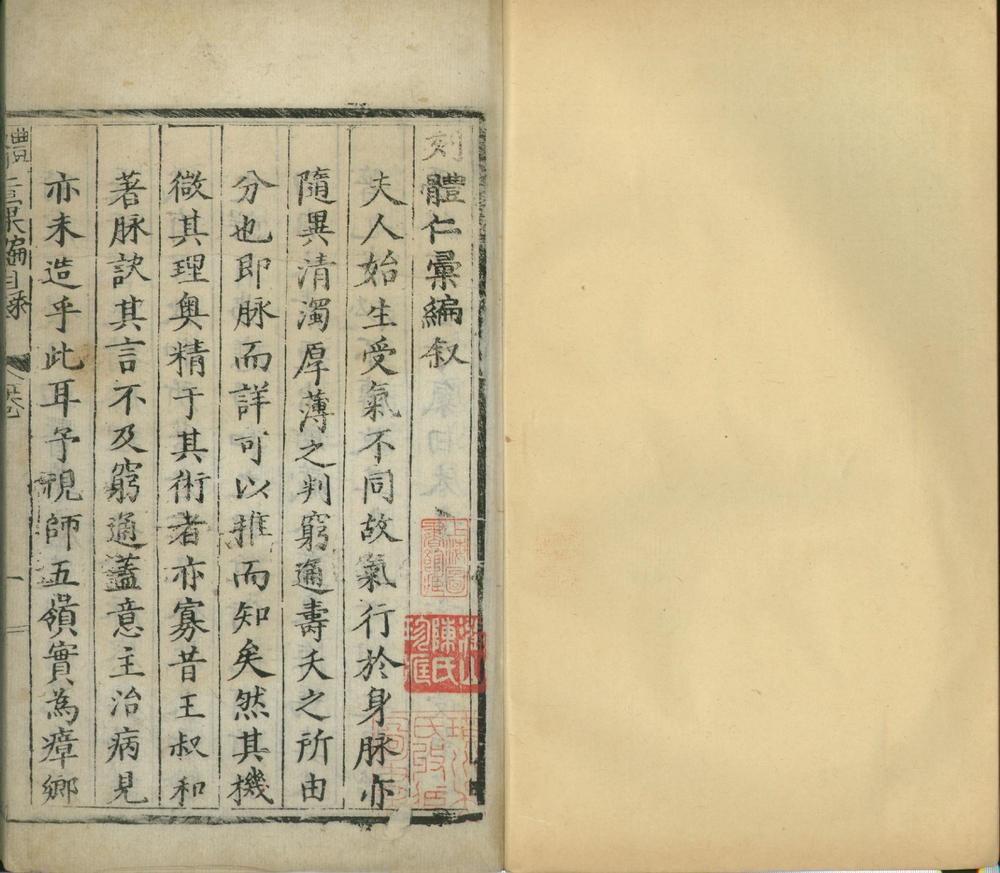 刻體仁彙編叙
夫人始生受氣不同故氣行於身脉亦
隨異清濁厚薄之判窮通壽夭之所由
分也即脉而詳可以推而知矣然其機
微其理奥精于其術者亦寡昔王叔和
著脉訣其言不及窮通蓋意主治病見
亦未造乎此耳予視師五嶺實為瘴鄉
體仁彙編目錄
一
上海圖書館藏
淮山陳氏珍匯